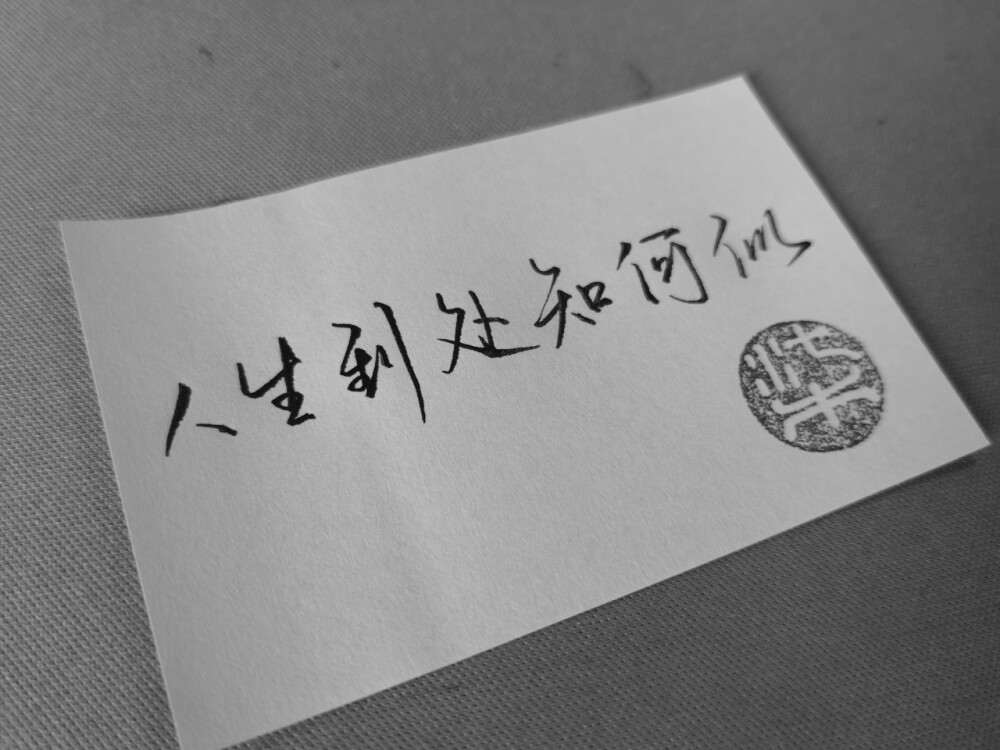 人生到处知何似